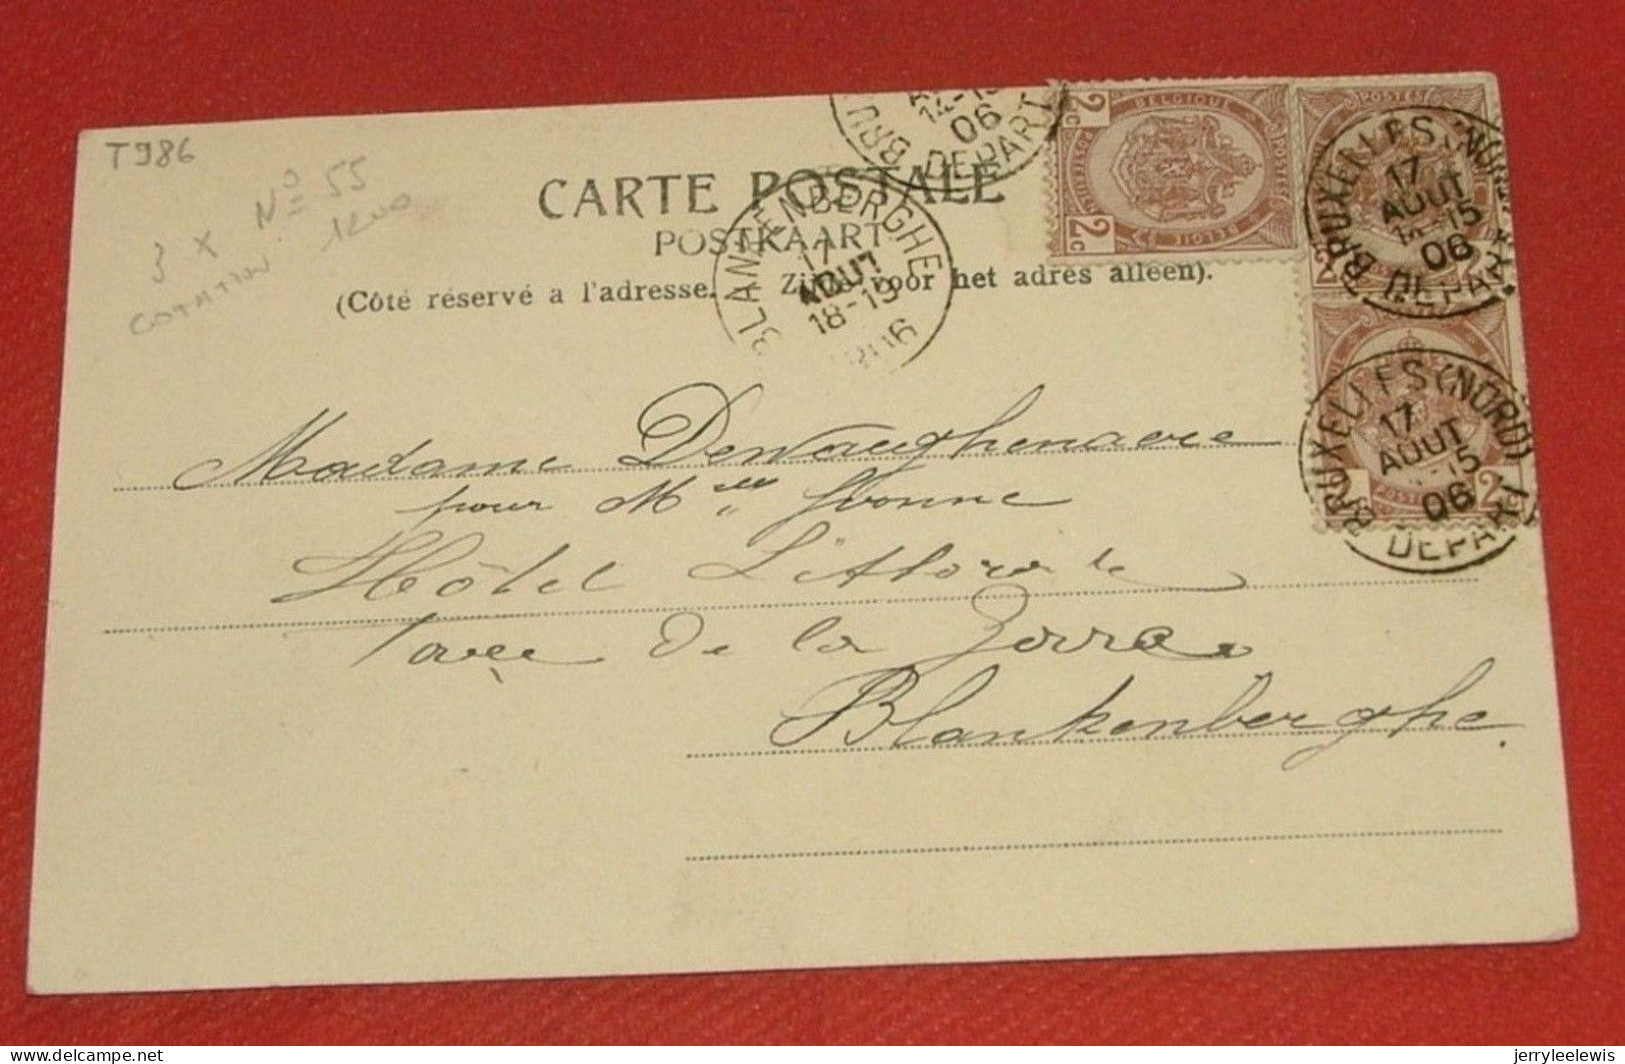 T986
3 x Nº 55
1200
COTATION
CARTE POSTALE
POSTKAART
(Côté réservé a l'adresse. Zijde voor het adres alleen).
BRU
14-15
06
DEPART
BLANKENBERGHE
17
AOUT
18-19
1906
2c BELGIQUE POSTES 2c
BELGIE
POSTES
BRUXELLES (NORD)
17
AOUT
14-15
06
DEPART
BRUXELLES (NORD)
17
AOUT
15
06
DEPART
2
Madame Dewaeghenaere
pour Mlle Yvonne
Hôtel Littoral
de la
Blankenberghe.
delcampe.net
jerryleelewis